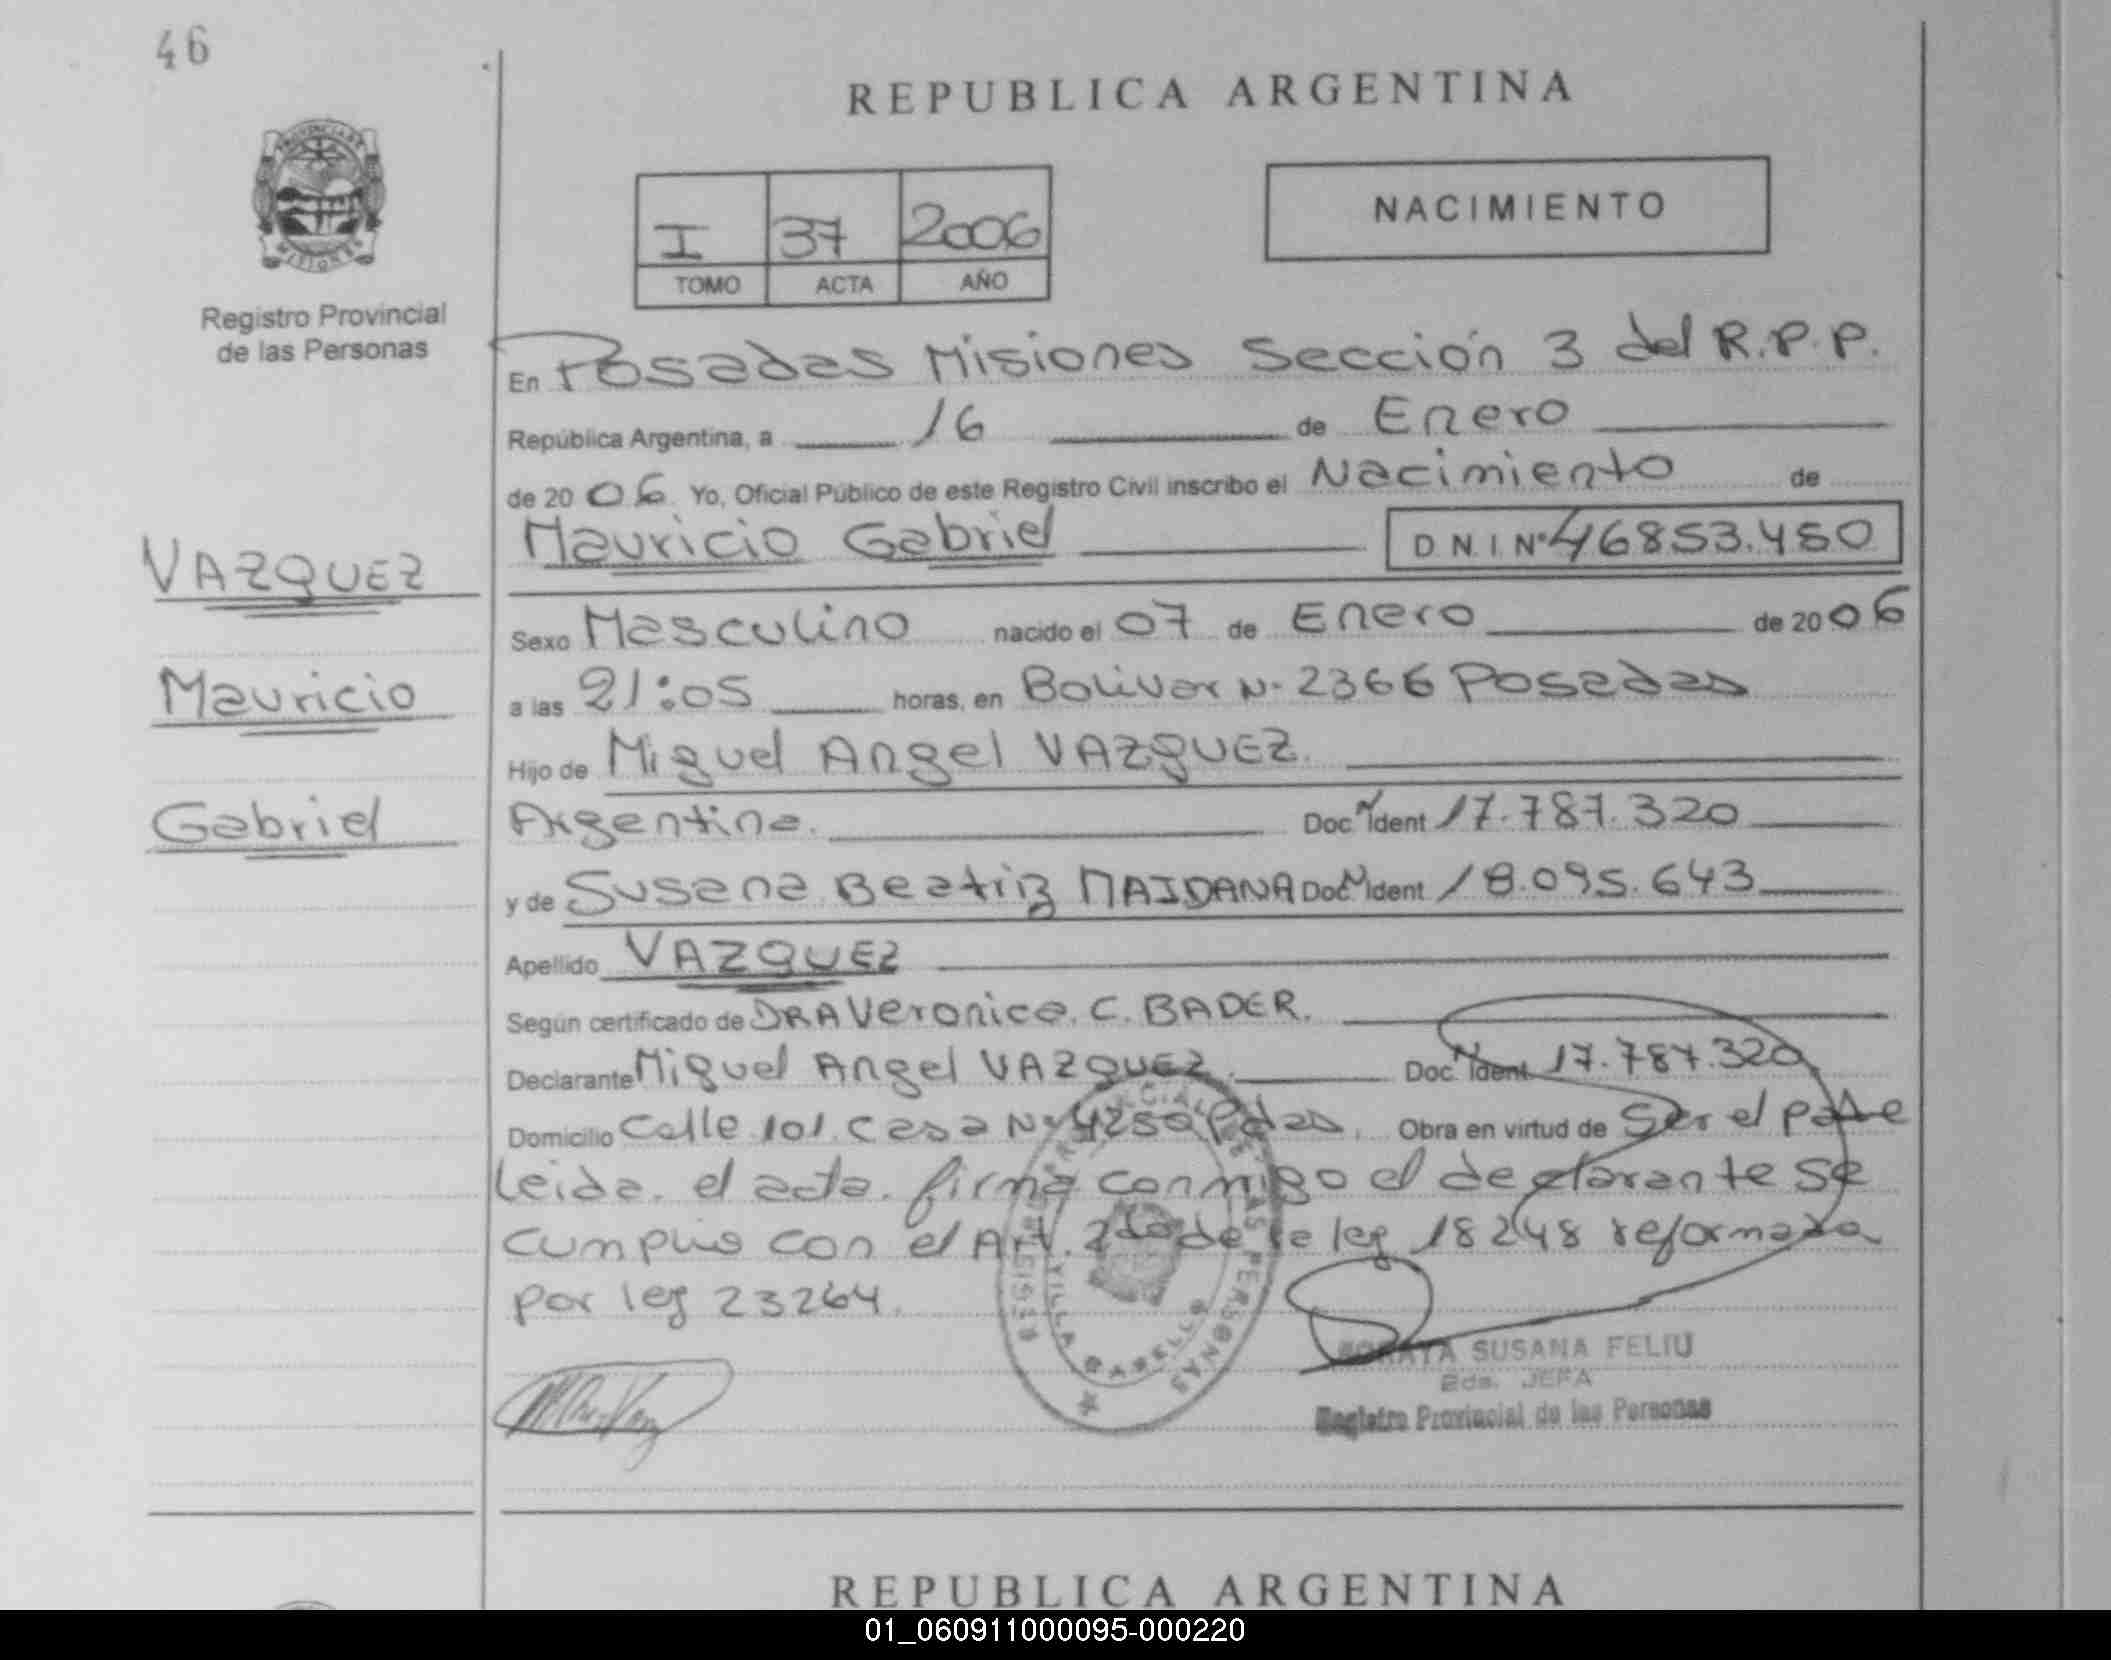 46
REPUBLICA ARGENTINA
PROVINCIA DE
MISIONES
Registro Provincial
de las Personas
I 37 2006
TOMO ACTA AÑO
NACIMIENTO
En Posadas Misiones Sección 3 del R.P.P.
República Argentina, a 16 de Enero
de 2006 Yo, Oficial Público de este Registro Civil inscribo el Nacimiento de
Mauricio Gabriel D N.I. Nº 46853.450
VAZQUEZ
Mauricio
Gabriel
Sexo Masculino nacido el 07 de Enero de 2006
a las 21:05 horas, en Bolivar N- 2366 Posadas
Hijo de Miguel Angel VAZQUEZ.
Argentina. Doc N Ident 17.787.320
y de Susana Beatriz MAIDANA Doc N Ident 18.095.643
Apellido VAZQUEZ
Según certificado de DRA Veronica. C. BADER.
Declarante Miguel Angel VAZQUEZ. Doc. N Ident 17.787.320
Domicilio Calle 101. Casa Nº 4250 Pdas. Obra en virtud de Ser el padre
Leida. el acta. firma conmigo el declarante se
cumplio con el Art. 2do de la ley 18248 reformada
por ley 23264.
REGISTRO PROVINCIAL DE LAS PERSONAS
VILLA CABELLO
SORAYA SUSANA FELIU
2da. JEFA
Registro Provincial de las Personas
REPUBLICA ARGENTINA
01_060911000095-000220